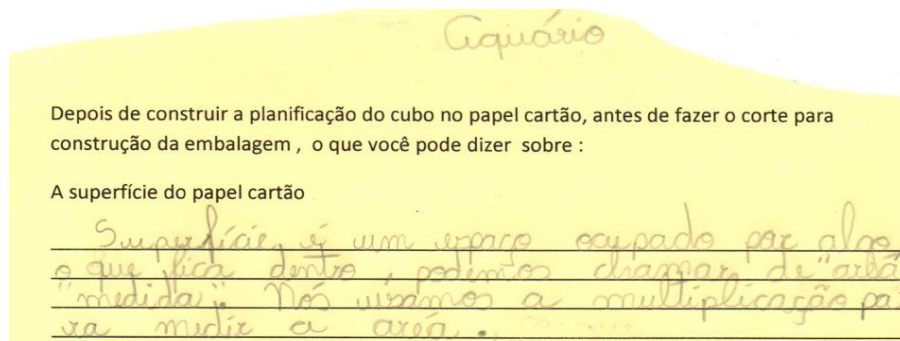 Aquário
Depois de construir a planificação do cubo no papel cartão, antes de fazer o corte para
construção da embalagem , o que você pode dizer sobre :
A superfície do papel cartão
Superfície, é um espaço ocupado por algo
o que fica dentro, podemos chamar de "areá
"medida". Nós usamos a multiplicação pa-
ra medir a areá.